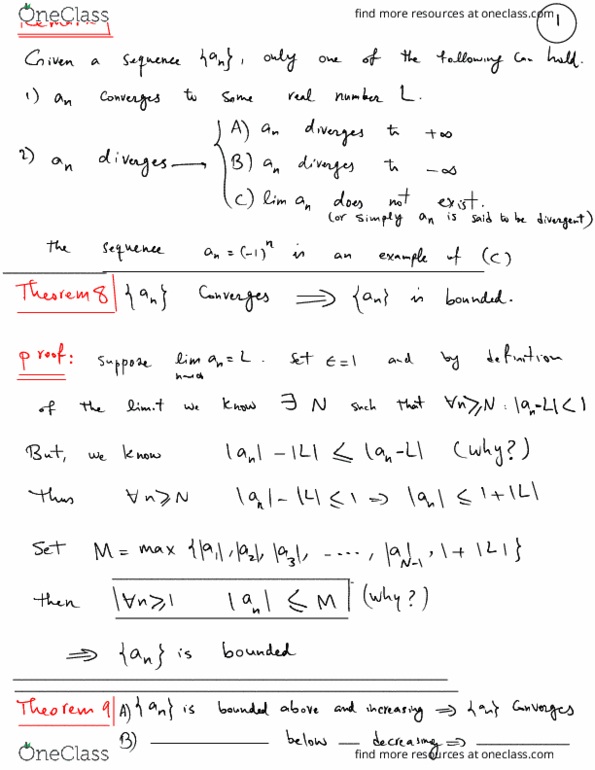 OneClass
find more resources at oneclass.com
1
Given a sequence {aₙ}, only one of the following can hold.
1) aₙ converges to some real number L.
2) aₙ diverges ⟶ { A) aₙ diverges to +∞
B) aₙ diverges to -∞
C) lim aₙ does not exist.
(or simply aₙ is said to be divergent)
the sequence aₙ = (-1)ⁿ is an example of (C)
Theorem 8 {aₙ} Converges ⟹ {aₙ} is bounded.
proof: suppose lim aₙ = L. Set ε=1 and by definition
n→∞
of the limit we know ∃ N such that ∀n≥N : |aₙ-L|<1
But, we know |aₙ| - |L| ≤ |aₙ-L| (why?)
Thus ∀n≥N |aₙ| - |L| ≤ 1 ⟹ |aₙ| ≤ 1+|L|
Set M = max {|a₁|, |a₂|, |a₃|, ...., |a_{N-1}|, 1+|L|}
then ∀n≥1 |aₙ| ≤ M (why?)
⟹ {aₙ} is bounded
Theorem 9 A) {aₙ} is bounded above and increasing ⟹ {aₙ} Converges
B) ——— below — decreasing ⟹ ———
OneClass
find more resources at oneclass.com